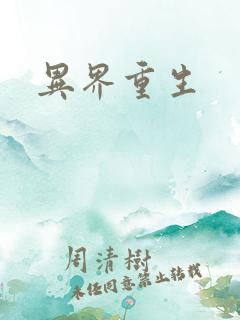 異界重生
周清樹
未經同意禁止轉載